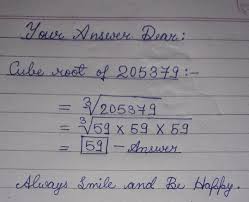 Your Answer Dear:
Cube root of 205379:-
= ∛205379
= ∛59 × 59 × 59
= 59 - Answer
Always Smile and Be Happy.